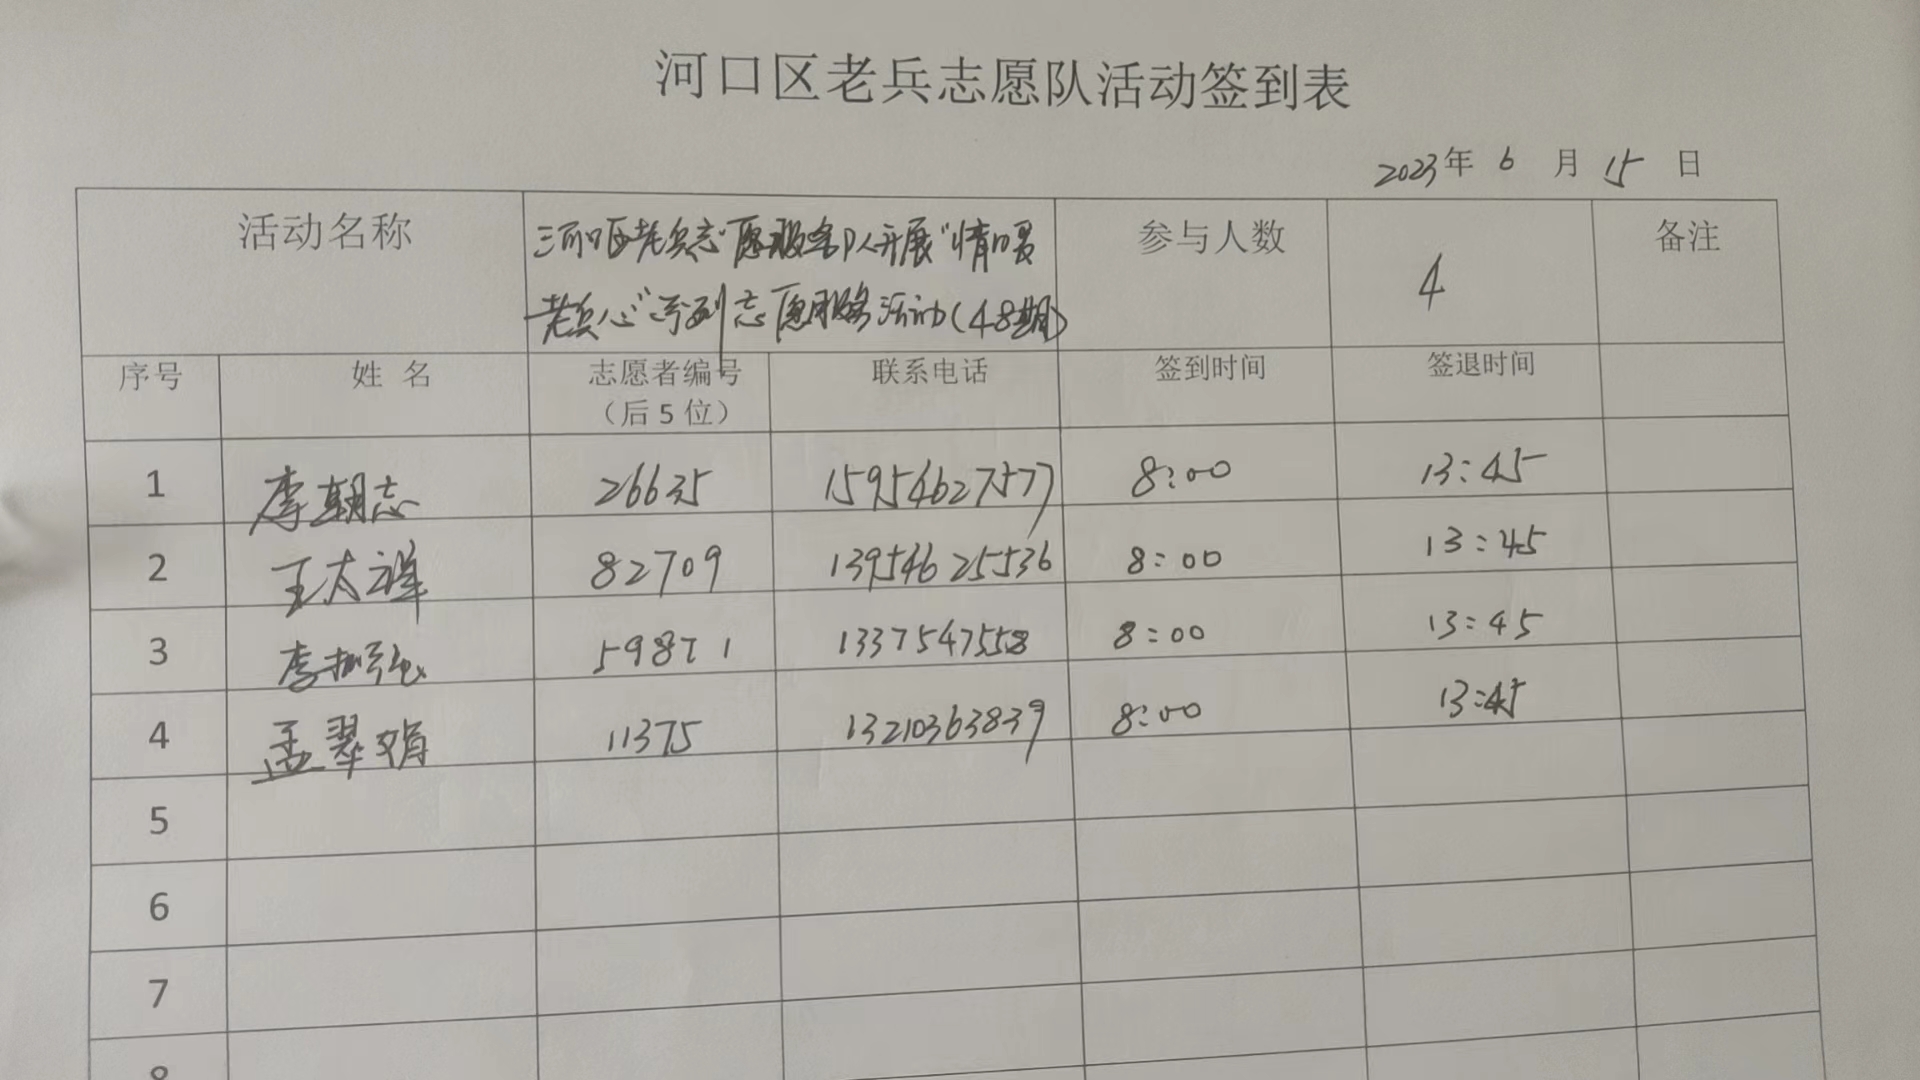 河口区老兵志愿队活动签到表
2023年 6 月 15 日
活动名称 河口区老兵志愿服务队开展“情暖老兵心”系列志愿服务活动(48期) 参与人数 4 备注
序号 姓 名 志愿者编号（后5位） 联系电话 签到时间 签退时间
1 李朝志 26635 15954627577 8:00 13:45
2 王太祥 82709 13954625536 8:00 13:45
3 李 强 59871 13375475558 8:00 13:45
4 孟翠娟 11375 13210363839 8:00 13:45
5
6
7
8